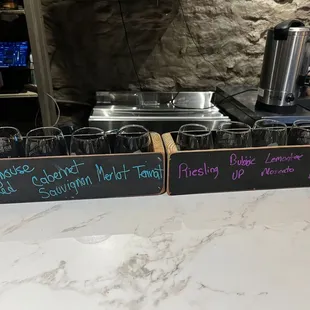 Cabernet
Sauvignon
Merlot
Tannat
Riesling
Bubble
UP
Lemontage
Moscato